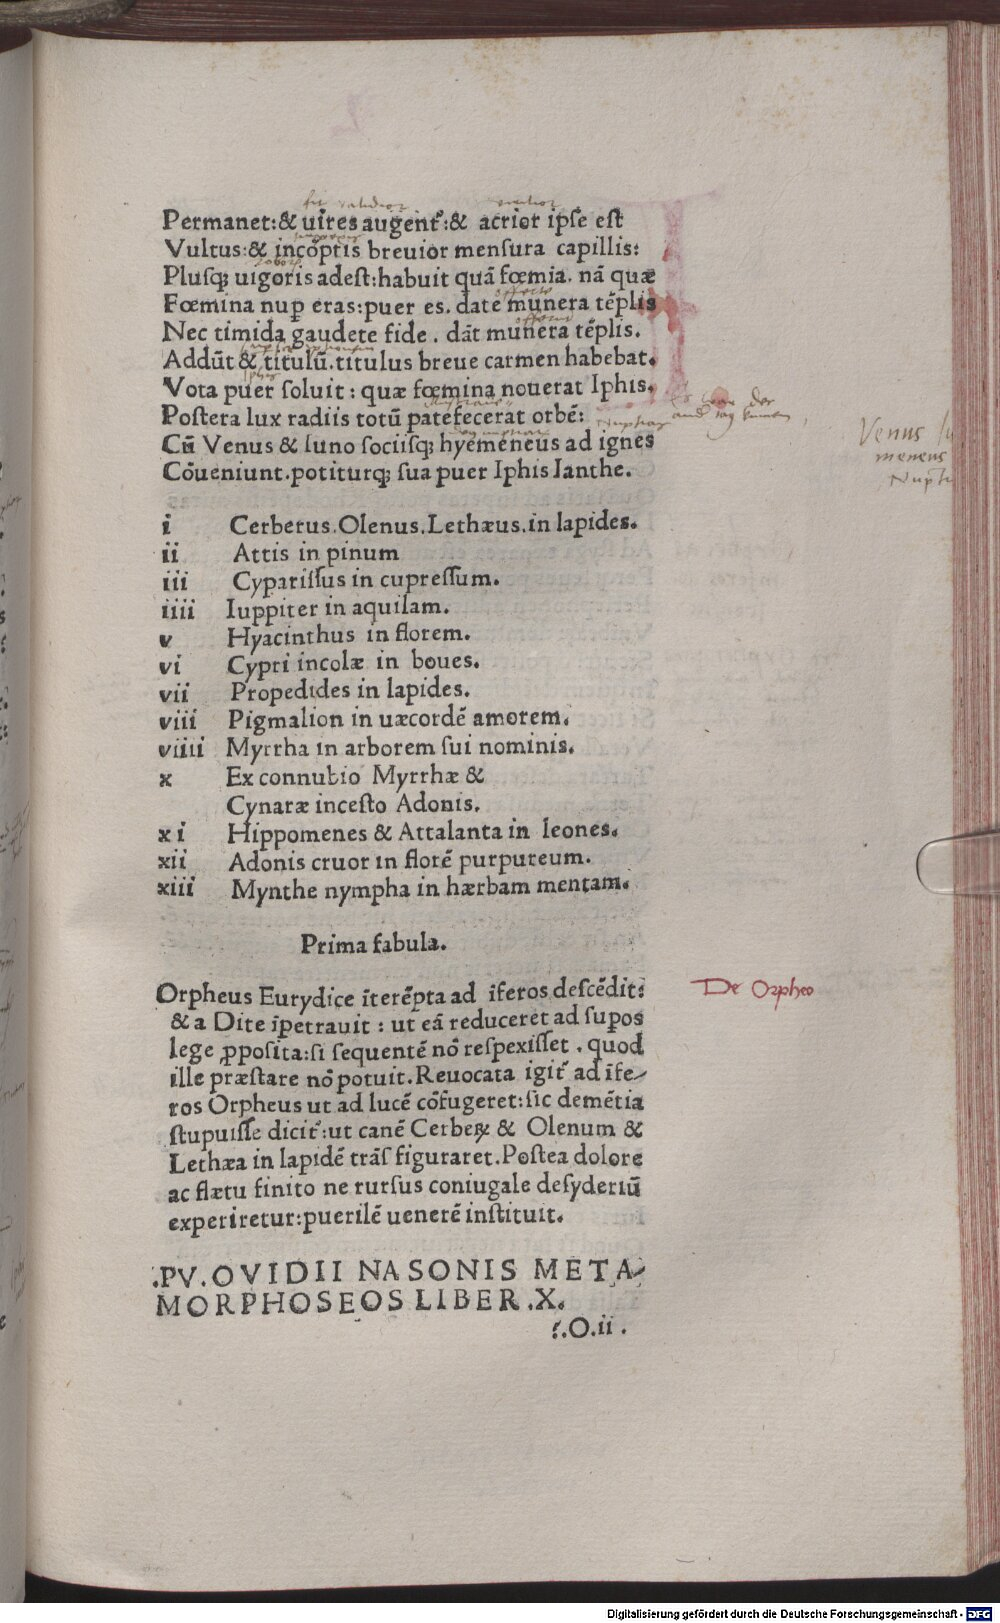 Permanet:& uires augent᷑:& acrior ipse est
Vultus:& incōptis breuior mensura capillis:
Plusq; uigoris adest:habuit quā fœmia. nā quæ
Fœmina nup̲ eras:puer es. date munera tēplis
Nec timida gaudete fide. dāt munera tēplis.
Addūt & titulū.titulus breue carmen habebat.
Vota puer soluit: quæ fœmina nouerat Iphis.
Postera lux radiis totū patefecerat orbē:
Cū Venus & Iuno sociisq; hyemeneus ad ignes
Cōueniunt.potiturq; sua puer Iphis Ianthe.
Venus
meneus
i Cerberus.Olenus.Lethæus.in lapides.
ii Attis in pinum
iii Cyparissus in cupressum.
iiii Iuppiter in aquilam.
v Hyacinthus in florem.
vi Cypri incolæ in boues.
vii Propedides in lapides.
viii Pigmalion in uæcordē amorem.
viiii Myrrha in arborem sui nominis.
x Ex connubio Myrrhæ &
Cynaræ incesto Adonis.
xi Hippomenes & Attalanta in leones.
xii Adonis cruor in florē purpureum.
xiii Mynthe nympha in hærbam mentam.
Prima fabula.
Orpheus Eurydice īterēpta ad īferos descēdit:
De Orpheo
& a Dite īpetrauit: ut eā reduceret ad supos
lege p̲posita:si sequentē nō respexisset. quod
ille præstare nō potuit.Reuocata igit᷑ ad īfe-
ros Orpheus ut ad lucē cōfugeret:sic demētia
stupuisse dicit᷑:ut canē Cerbeꝝ & Olenum &
Lethæa in lapidē trās figuraret.Postea dolore
ac flætu finito ne rursus coniugale desyderiū
experiretur:puerilē uenerē instituit.
.PV. OVIDII NASONIS META-
MORPHOSEOS LIBER .X.
:.O.ii.
Digitalisierung gefördert durch die Deutsche Forschungsgemeinschaft - DFG